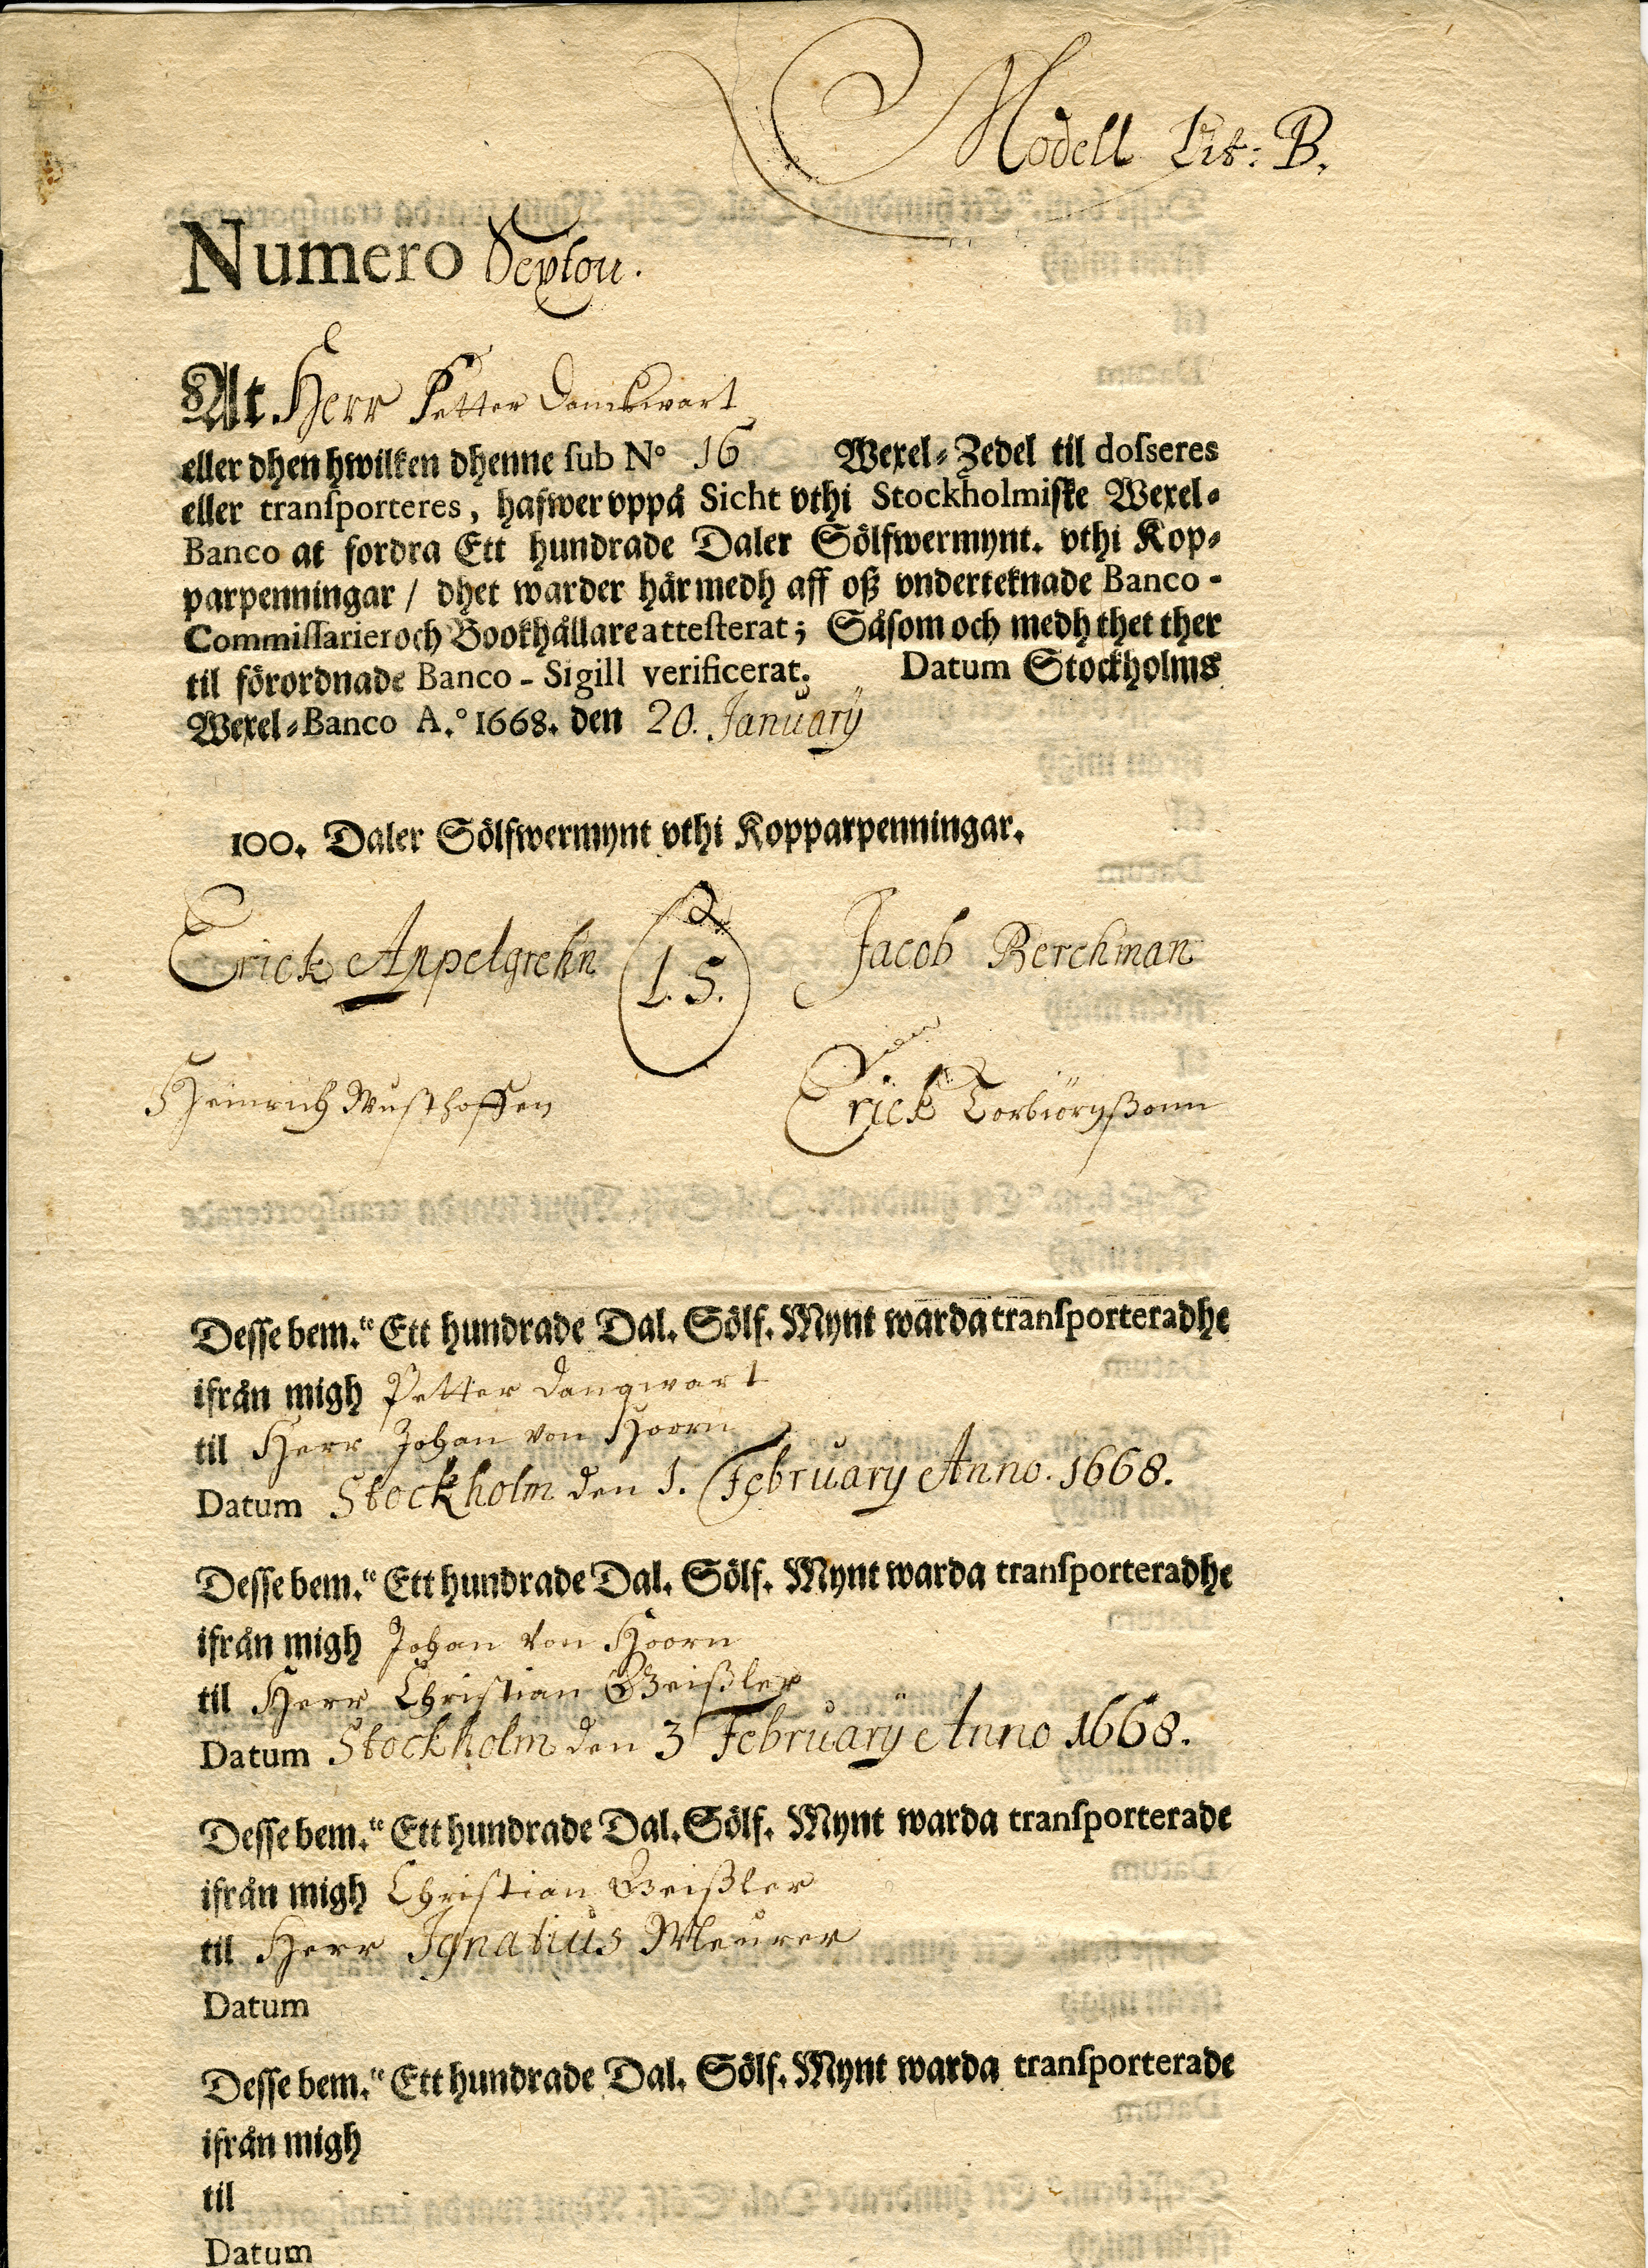 Modell Lit: B.
Numero Sexton.
At Herr Petter Danckwart
eller dhen hwilken dhenne ſub N° 16 Wexel-Zedel til doſseres
eller tranſporteres, hafwer vppå Sicht vthi Stockholmiſke Wexel-
Banco at fordra Ett hundrade Daler Sölfwermynt. vthi Kop-
parpenningar / dhet warder här medh aff oß vnderteknade Banco-
Commiſſarier och Bookhållare atteſterat; Såſom och medh thet ther
til förordnade Banco-Sigill verificerat. Datum Stockholms
Wexel-Banco A.° 1668. den 20. Januarÿ
100. Daler Sölfwermynt vthi Kopparpenningar.
Erick Appelgrehn L.S. Jacob Berchman
Heinrich Wuſthoffen Erick Torbiörnßonn
Deſſe bem.te Ett hundrade Dal. Sölf. Mynt warda tranſporteradhe
ifrån migh Petter Dangwart
til Herr Johan von Hoorn
Datum Stockholm den 1. February Anno. 1668.
Deſſe bem.te Ett hundrade Dal. Sölf. Mynt warda tranſporteradhe
ifrån migh Johan von Hoorn
til Herr Chriſtian Geißler
Datum Stockholm den 3 Februarÿ Anno 1668.
Deſſe bem.te Ett hundrade Dal. Sölf. Mynt warda tranſporterade
ifrån migh Chriſtian Geißler
til Herr Ignatius Meurer
Datum
Deſſe bem.te Ett hundrade Dal. Sölf. Mynt warda tranſporterade
ifrån migh
til
Datum